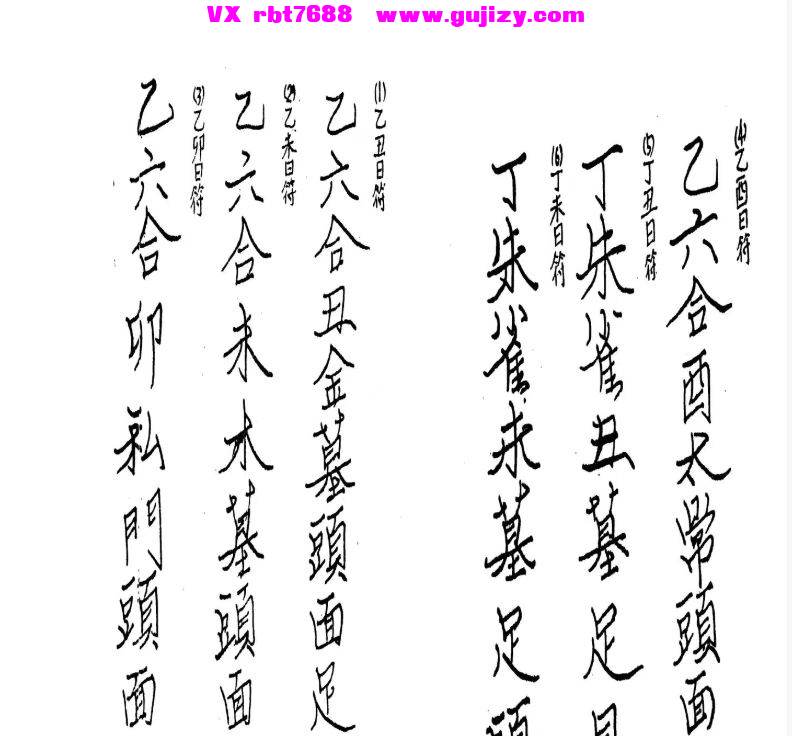 VX rbt7688 www.gujizy.com
(4)乙酉日符
乙六合酉太常頭面
(5)丁丑日符
丁朱雀丑墓足
(6)丁未日符
丁朱雀未墓足
(1)乙丑日符
乙六合丑金墓頭面足
(2)乙未日符
乙六合未木墓頭面
(3)乙卯日符
乙六合卯私門頭面